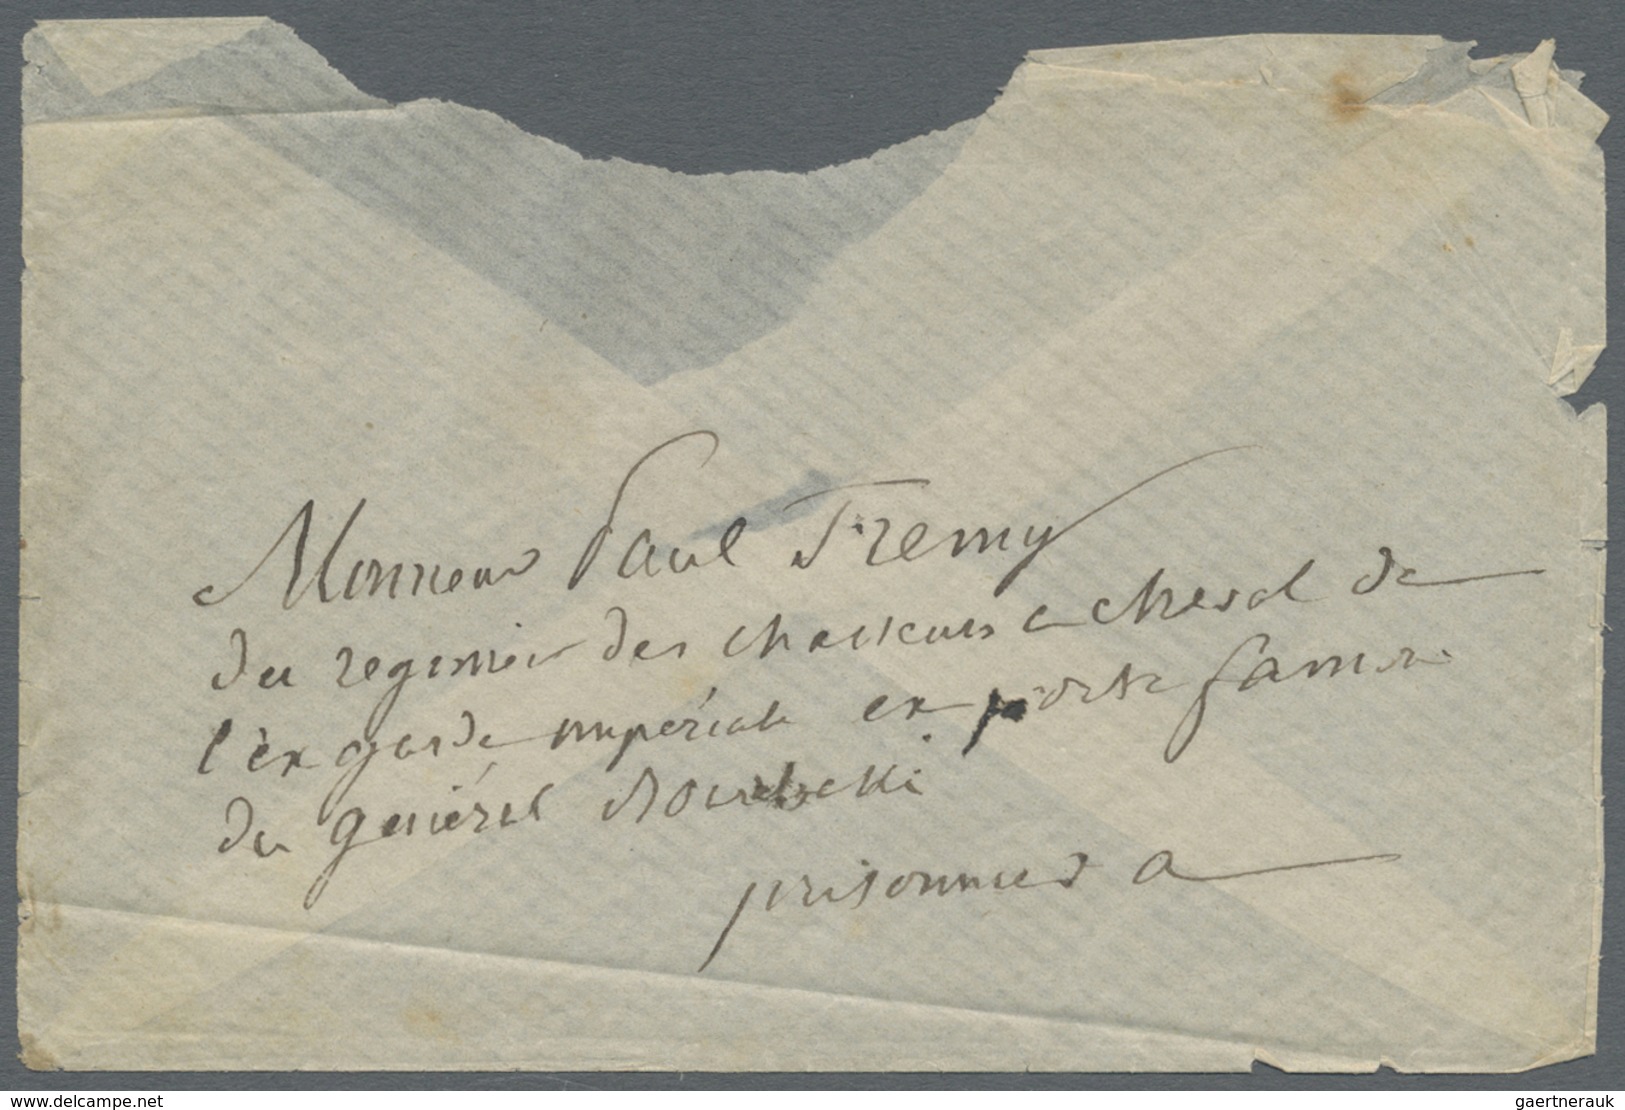 Monsieur Paul Fremy
du regiment des chasseurs a cheval de
l'ex garde impériale ex porte fanion
du général Bourbaki
prisonnier a
www.delcampe.net
gaertnerauk